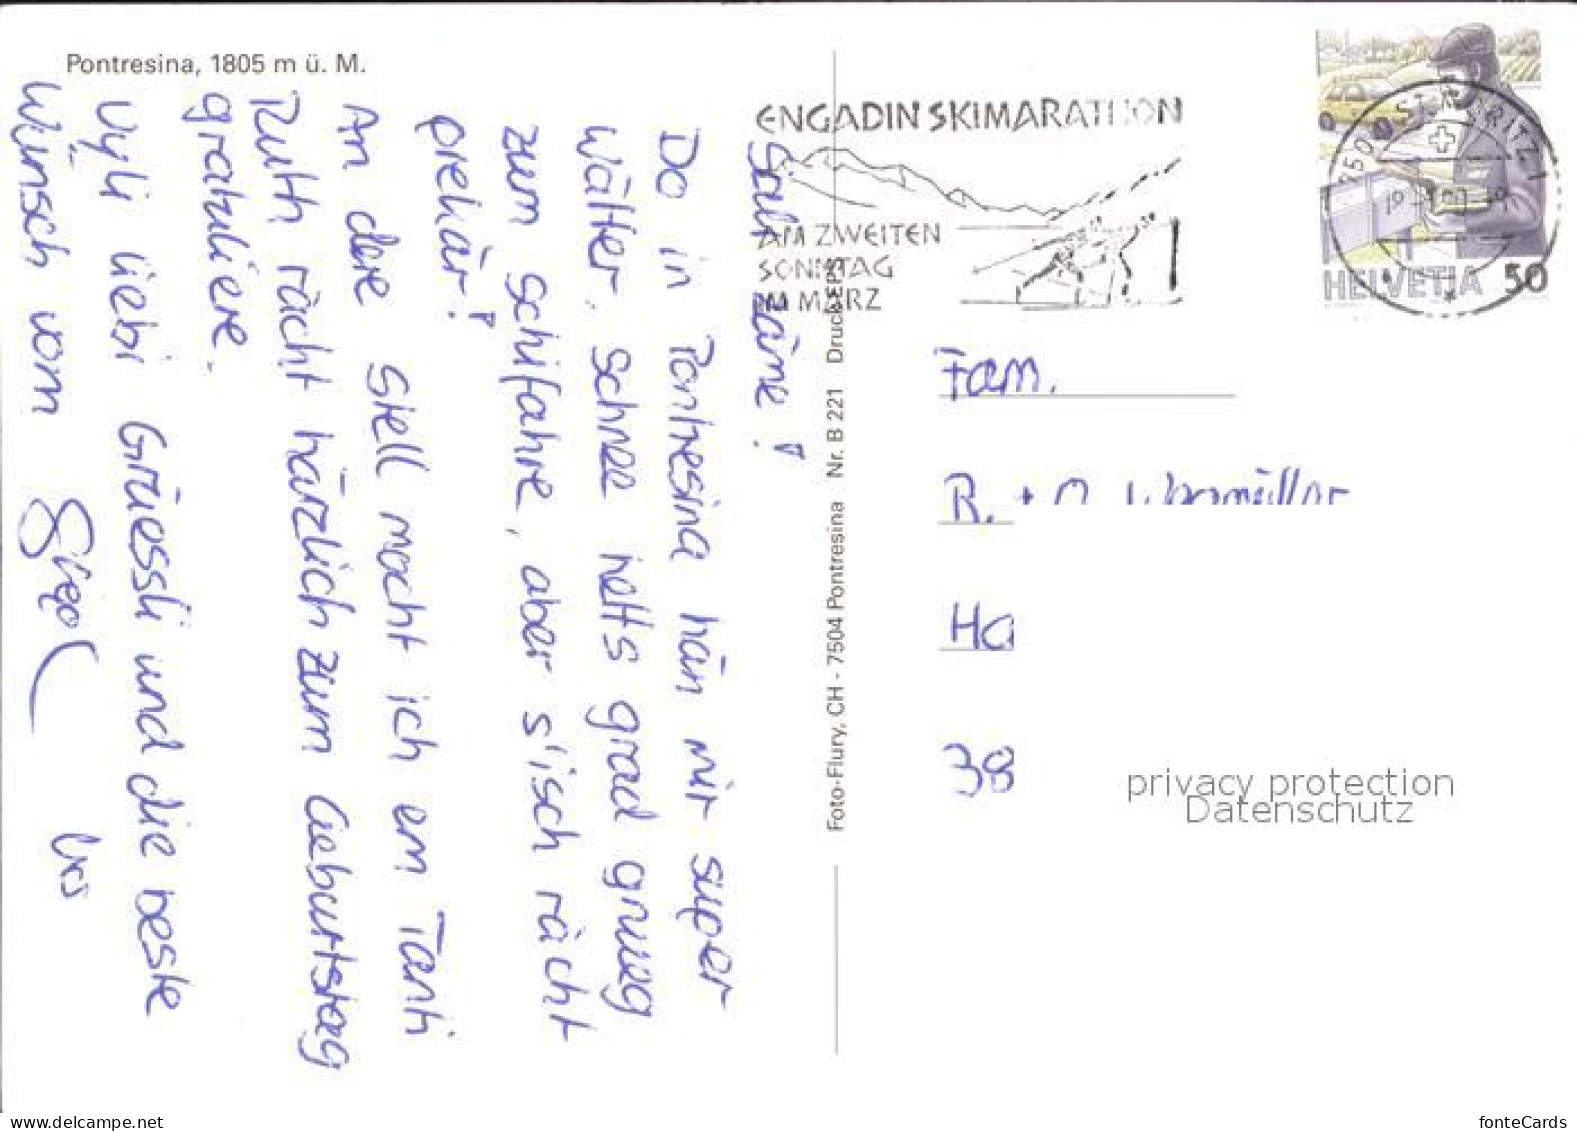 Pontresina, 1805 m ü. M.
Sali zäme!
Do in Pontresina hän mir super
Wätter. Schnee hetts grad gnueg
zum schifahre, aber s'isch rächt
prekär!
An dere Stell mocht ich em Tanti
Ruth rächt härzlich zum Geburtstag
gratuliere.
Vyli liebi Grüessli und die beste
Wünsch vom
Urs
Foto-Flury, CH - 7504 Pontresina Nr. B 221
ENGADIN SKIMARATHON
AM ZWEITEN
SONNTAG
IM MÄRZ
ST. MORITZ 1
HELVETIA 50
Fam.
R. +
Ha
38
privacy protection
Datenschutz
www.delcampe.net
fonteCards